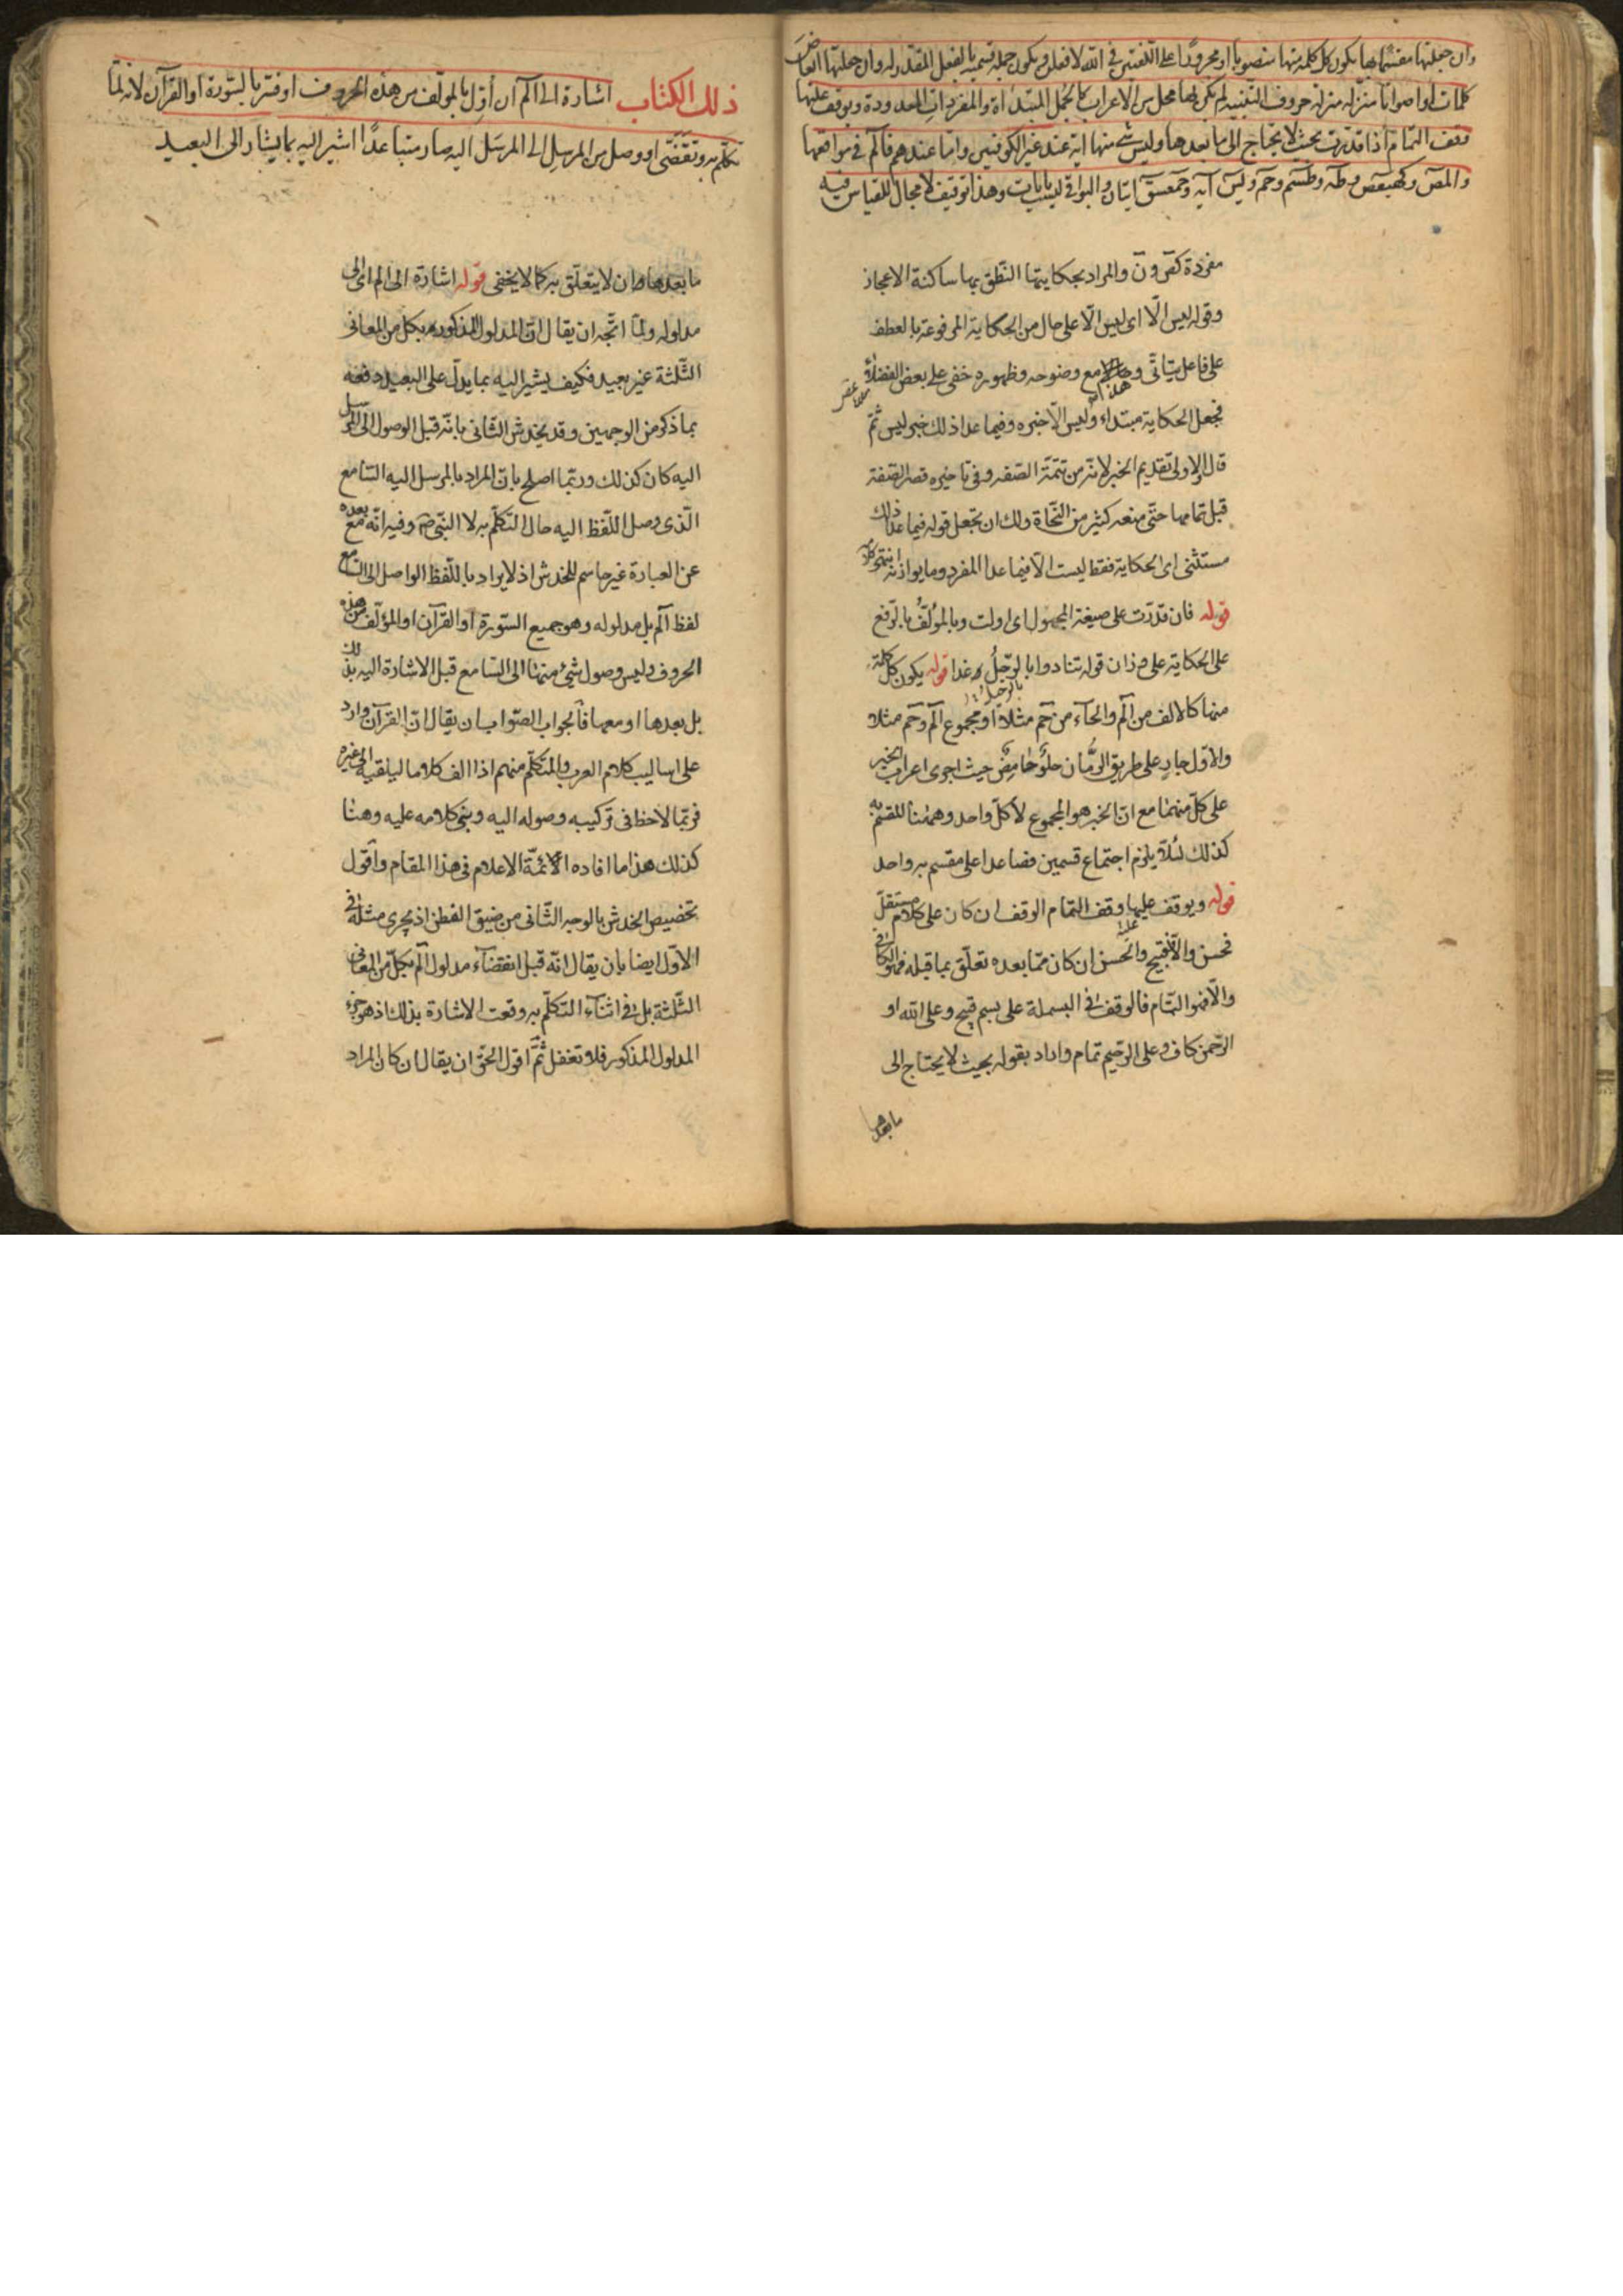 وان جعلتها مقسما بها يكون كل كلمة منها منصوبا او مجرورا على اللغتين في الله لافعلن ويكون جملة قسمية بالفعل المقدر له وان جعلتها ابعاض
كلمات او اصواتا منزلة منزلة حروف التنبيه لم يكن لها محل من الاعراب كالجمل المبتدأة والمفردات المعدودة ويوقف عليها
وقف التمام اذا قدرت بحيث لا يحتاج الى ما بعدها وليس شئ منها اية عند غير الكوفيين واما عندهم فالم في مواقعها
والمص وكهيعص وطه وطسم وحم ويس آية وحمعسق ايتان والبواقي ليست بايات وهذا توقيف لا مجال للقياس فيه
مفردة كق ون والمراد بحكايتها النطق بها ساكنة الاعجاز
وقوله ليس الا اى ليس الا على حال من الحكاية المرفوعة بالعطف
على فاعل يتأتى وهذا مع وضوحه وظهوره خفى على بعض الفضلاء
فجعل الحكاية مبتداء وليس الا خبره وفيما عدا ذلك خبر ليس ثم
قال الاولى تقديم الخبر لانه من تتمة الصفة وفى تاخيره قصر الصفة
قبل تمامها حتى منعه كثير من النحاة ولك ان تجعل قوله فيما عدا ذلك
مستثنى اى الحكاية فقط ليست الا فيما عدا المفرد وما يوازنه انتهى كلامه
قوله فان قدرت على صيغة المجهول اى اولت وبالمؤلف بالرفع
على الحكاية على وزان قوله تنادوا بالرحيل غدا قوله يكون كل كلمة
منها كالالف من الم والحاء من حم مثلا او مجموع الم وحم مثلا
والاول جار على طريق الرمان حلو حامض حيث اجرى اعراب الخبر
على كل منهما مع ان الخبر هو المجموع لا كل واحد وههنا المقسم به
كذلك لئلا يلزم اجتماع قسمين فصاعدا على مقسم به واحد
قوله ويوقف عليها وقف التمام الوقف ان كان على كلام مستقل
فحسن والا فقبيح والحسن ان كان مما بعده تعلق بما قبله فهو الكافى
والا فهو التام فالوقف فى البسملة على بسم قبيح وعلى الله او
الرحمن كاف وعلى الرحيم تمام واراد بقوله بحيث لا يحتاج الى
ما بعدها
ذلك الكتاب اشارة الى الم ان اول بالمؤلف من هذه الحروف او فسر بالسورة او القرآن لانه لما
تكلم به وتقضى او وصل من المرسل الى المرسل اليه صار متباعدا اشير اليه بما يشار الى البعيد
ما بعدها وان لا يتعلق به كما لا يخفى قوله اشارة الى الم اى الى
مدلوله ولما اتجه ان يقال ان المدلول المذكور بكل من المعانى
الثلثة غير بعيد فكيف يشير اليه بما يدل على البعيد دفعه
بما ذكر من الوجهين وقد يخدش الثانى بانه قبل الوصول الى المرسل
اليه كان كذلك وربما اصلح بان المراد بالمرسل اليه السامع
الذى وصل اللفظ اليه حال التكلم به لا النبى ص وفيه انه مع بعده
عن العبارة غير حاسم للخدش اذ لا يراد باللفظ الواصل الى السامع
لفظ الم بل مدلوله وهو جميع السورة او القرآن او المؤلف من هذه
الحروف وليس وصول شئ منها الى السامع قبل الاشارة اليه بذلك
بل بعدها او معها فالجواب الصواب ان يقال ان القرآن وارد
على اساليب كلام العرب والمتكلم منهم اذا الف كلاما ليلقيه الى غيره
فربما لاحظ فى تركيبه وصوله اليه وبنى كلامه عليه وهنا
كذلك هذا ما افاده الائمة الاعلام فى هذا المقام واقول
تخصيص الخدش بالوجه الثانى من ضيق الفطن اذ يجرى مثله فى
الاول ايضا بان يقال انه قبل انقضاء مدلول الم بكل من المعانى
الثلثة بل فى اثناء التكلم به وقعت الاشارة بذلك اذ هو جزء
المدلول المذكور فلا تغفل ثم اقول الحق ان يقال ان كان المراد